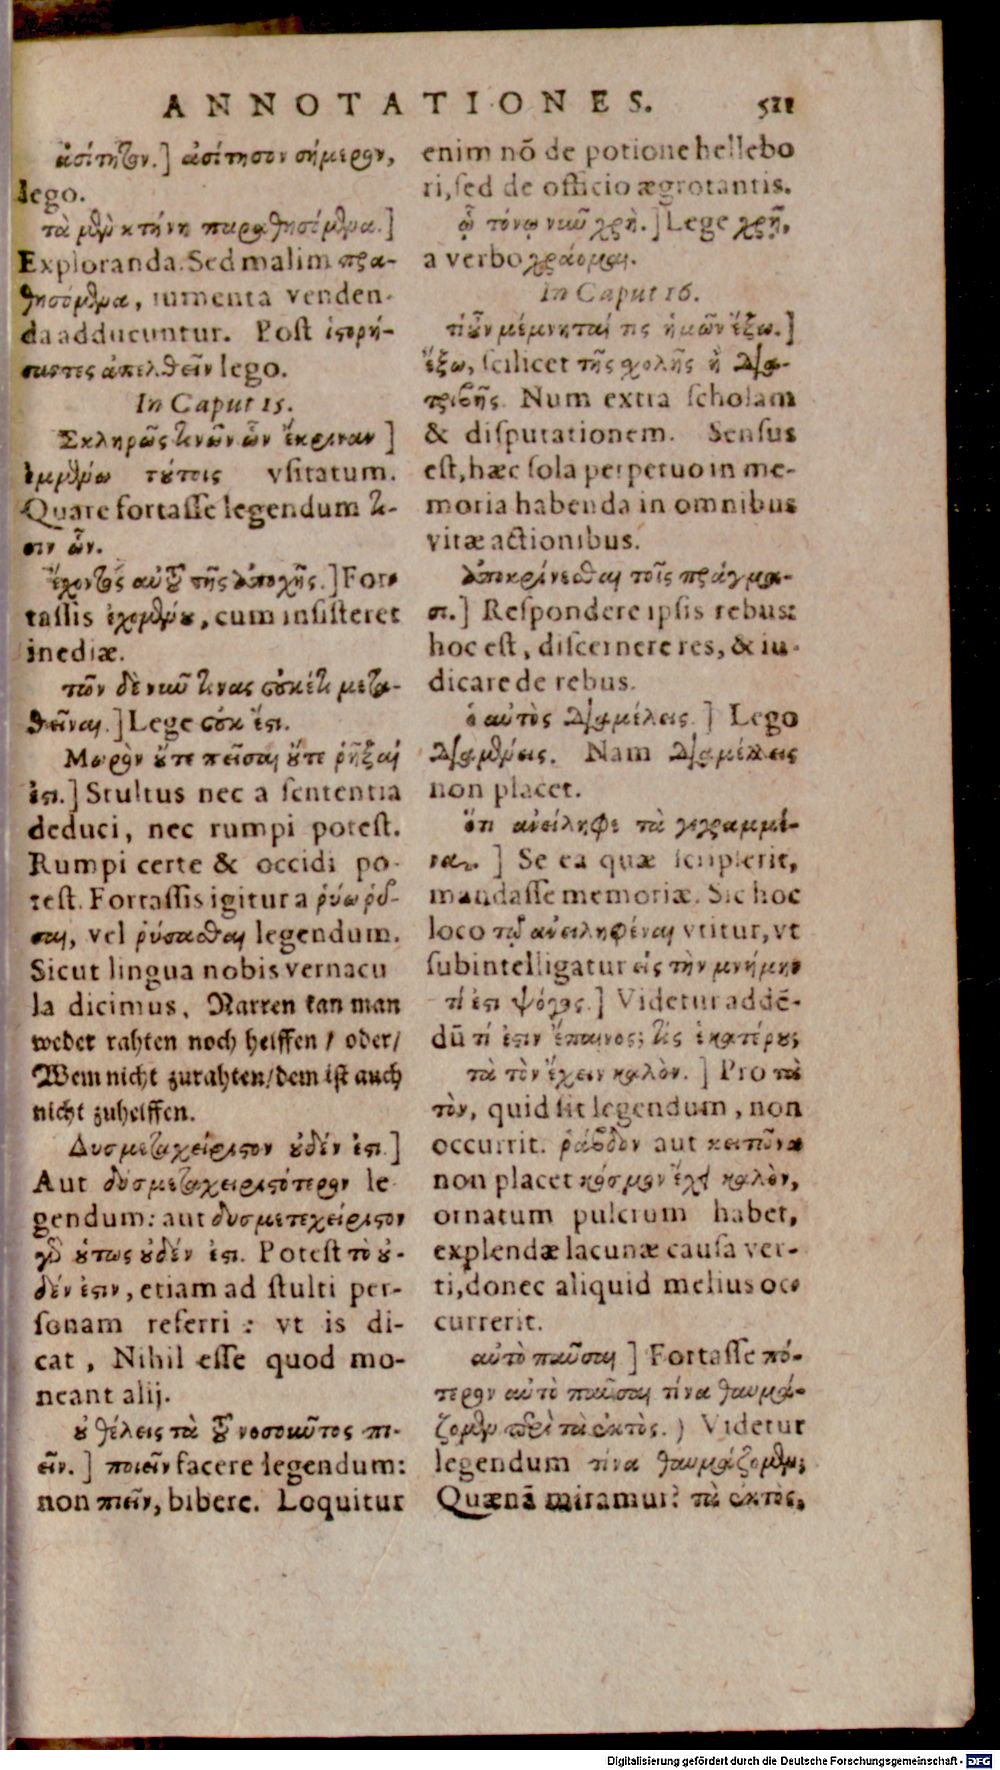 ANNOTATIONES. 511
ἀσίτησον.] ἀσίτησον σήμερον,
lego.
τὰ μὲν κτήνη
Exploranda. Sed malim πρα-
θησόμενα, iumenta venden-
da adducuntur. Post ἱστορή-
σαντες ἀπελθεῖν lego.
In Caput 15.
Σκληρῶς τινῶν ὧν ἔκριναν ]
ἐμμένω τούτοις vsitatum.
Quare fortasse legendum τι-
σιν ὧν.
ἔχοντος αὐτοῦ τῆς ἀποχῆς.] For-
tassis ἐχομένου, cum insisteret
inediæ.
τῶν δὲ νῦν τινας οὐκέτι μετα-
θεῖναι.] Lege οὐκ ἔστι.
Μωρὸν οὔτε πεῖσαι οὔτε ῥῆξαί
ἐστι.] Stultus nec a sententia
deduci, nec rumpi potest.
Rumpi certe & occidi po-
test. Fortassis igitur a ῥύω ῥῦ-
σαι, vel ῥύσασθαι legendum.
Sicut lingua nobis vernacu
la dicimus, Narren kan man
weder rahten noch helffen / oder/
Wem nicht zurahten/dem ist auch
nicht zuhelffen.
Δυσμεταχείριστον οὐδέν ἐστι.]
Aut δυσμεταχειριστότερον le
gendum: aut δυσμετεχείριστον
οὕτως οὐδέν ἐστι. Potest τὸ οὐ-
δέν ἐστιν, etiam ad stulti per-
sonam referri : vt is di-
cat, Nihil esse quod mo-
neant alij.
οὐ θέλεις τὰ τοῦ νοσοῦντος πι-
εῖν.] ποιεῖν facere legendum:
non πιεῖν, bibere. Loquitur
enim nõ de potione hellebo
ri, sed de officio ægrotantis.
ᾧ τόνῳ νῦν χρὴ.] Lege χρῇ,
a verbo χράομαι.
In Caput 16.
τίνων μέμνηταί τις ἡμῶν ἔξω.]
ἔξω, scilicet τῆς σχολῆς ἢ δια-
τριβῆς. Num extra scholam
& disputationem. Sensus
est, hæc sola perpetuo in me-
moria habenda in omnibus
vitæ actionibus.
ἀποκρίνεσθαι τοῖς πράγμα-
σι.] Respondere ipsis rebus:
hoc est, discernere res, & iu-
dicare de rebus.
ὁ αὐτὸς διαμέλεις.] Lego
διαμένεις. Nam διαμέλεις
non placet.
ὅτι ἀνείληφε τὰ γεγραμμέ-
να. ] Se ea quæ scripserit,
mandasse memoriæ. Sic hoc
loco τῷ ἀνειληφέναι vtitur, vt
subintelligatur εἰς τὴν μνήμην
τί ἐστι ψόγος.] Videtur addẽ-
dũ τί ἐστιν ἔπαινος; ἑκατέρους
τὰ τὸν ἔχειν καλὸν. ] Pro τὰ
τὸν, quid sit legendum, non
occurrit. ῥάβδον aut
non placet κόσμον ἔχει καλὸν,
ornatum pulcrum habet,
explendæ lacunæ causa ver-
ti, donec aliquid melius oc-
currerit.
αὐτὸ παῦσαι ] Fortasse πό-
τερον αὐτὸ παῦσαι τίνα θαυμά-
ζομεν περὶ τὰ ἐκτὸς.) Videtur
legendum τίνα θαυμάζομεν;
Quænã miramur? τὰ ἐκτὸς,
Digitalisierung gefördert durch die Deutsche Forschungsgemeinschaft - DFG